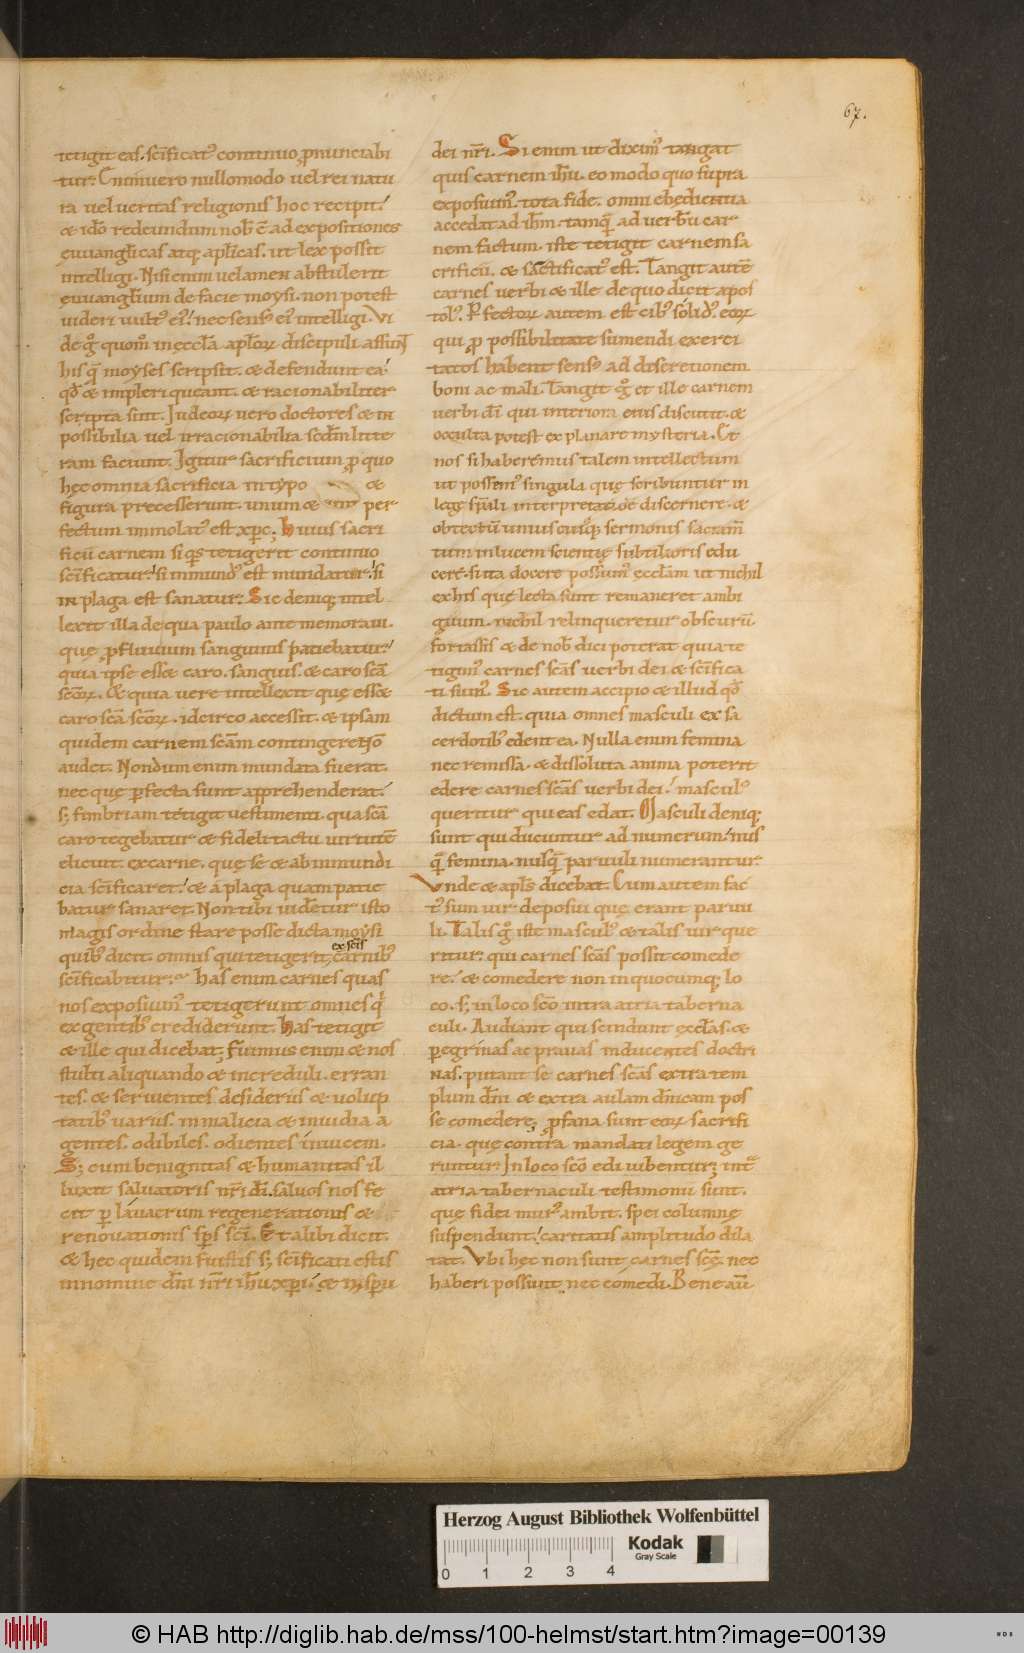 67.
tetigit eas. sc̄ificat᷑ continuo p̱nunciabi
tur. Enimuero nullomodo uel rei natu
ra uel ueritas religionis hoc recipit.
& id̄o redeundum nob̄ ē ad expositiones
euuangl̄icas atq; ap̄licas. ut lex possit
intelligi. Nisi enim uelamen abstulerit
ęuuangl̄ium de facie moysi. non potest
uideri uult᷒ ei᷒. nec sens᷒ ei᷒ intelligi. Vi
de g̊ quom̄ in ęccl̄a apl̄oꝝ discipuli assunt
his quę moyses scripsit. & defendunt ea.
qd̄ & impleri queant. & racionabiliter
scripta sint. Judeoꝝ uero doctores & in
possibilia uel irracionabilia scd̄m litte
ram faciunt. Igitur sacrificium ꝓ quo
hęc omnia sacrificia in typo &
figura precesserunt. unum & per
fectum immolat᷒ est xp̄c; Huius sacri
ficii carnem si q̄s tetigerit continuo
sc̄ificatur. si inmund᷒ est mundatur. si
in plaga est sanatur. Sic deniq; intel
lexit illa de qua paulo ante memoraui.
quę ꝓfluuium sanguinis patiebatur.
quia ipse ess& caro. sanguis. & caro sc̄a
sc̄oꝝ. & quia uere intellexit quę ess&
caro sc̄a sc̄oꝝ. idcirco accessit. & ipsam
quidem carnem sc̄am contingere n̄
audet. Nondum enim mundata fuerat.
nec quę ꝑfecta sunt apprehenderat.
s; fimbriam tetigit uestimenti. qua sc̄a
caro tegebatur & fideli tactu uirtutē
elicuit. ex carne. quę se & ab inmundi
cia sc̄ificaret. & a plaga quam patie
batur sanaret. Non tibi uidetur isto
magis ordine stare posse dicta moysi
ex sc̄is
quib᷒ dicit. omnis qui tetigerit, carnib᷒
sc̄ificabitur. has enim carnes quas
nos exposuim᷒ tetigerunt omnes q̇
ex gentib᷒ crediderunt. has tetigit
& ille qui dicebat; Fuimus enim & nos
stulti aliquando & increduli. erran
tes. & seruientes desideriis & uolup
tatib᷒ uariis. in malicia & inuidia a
gentes. odibiles. odientes inuicem.
S; cum benignitas & humanitas il
luxit saluatoris nr̄i dī. saluos nos fe
cit ꝑ lauacrum regenerationis &
renouationis sp̄s sc̄i. Et alibi dicit.
& hec quidem fuistis s; sc̄ificati estis
in nomine dn̄i nr̄i ih̄u xp̄i. & in sp̄u
dei nr̄i. Si enim ut dixim᷒ tangat
quis carnem ih̄u. eo modo quo supra
exposuim᷒. tota fide. omni obędientia
accedat ad ih̄m. tamq̄ ad uerbū car
nem factum. iste tetigit carnem sa
crificii. & sanctificat᷒ est. Tangit autē
carnes uerbi & ille de quo dicit apos
tol᷒. Pfectoꝝ autem est cib᷒ solid᷒. eoꝝ
qui ꝓ possibilitate sumendi exerci
tatos habent sens᷒ ad discretionem
boni ac mali. Tangit g̊ et ille carnem
uerbi dī qui interiora eius discutit. &
occulta potest explanare mysteria. Et
nos si haberemus talem intellectum
ut possem᷒ singula quę scribuntur in
lege sp̄uali interpretatiōe discernere. &
obtectū uniuscuiq; sermonis sacram̄
tum in lucem scientię subtilioris edu
cere. si ita docere possim᷒ ęccl̄am ut nichil
ex his quę lecta sunt remaneret ambi
guum. nichil relinqueretur obscurū
fortassis & de nob̄ dici poterat quia te
tigim᷒ carnes sc̄as uerbi dei & sc̄ifica
ti sum᷒. Sic autem accipio & illud qd̄
dictum est. quia omnes masculi ex sa
cerdotib᷒ edent ea. Nulla enim femina
nec remissa. & dissoluta anima poterit
edere carnes sc̄as uerbi dei. mascul᷒
queritur qui eas edat. Masculi deniq;
sunt qui ducuntur ad numerum. nus
q̄ femina. nusq̄ paruuli numerantur.
Vnde & apl̄s dicebat. Cum autem fac
t᷒ sum uir deposui quę erant paruu
li. Talis g̊ iste mascul᷒ & talis uir que
ritur. qui carnes sc̄as possit comede
re. & comedere non in quocumq; lo
co. s; in loco sc̄o intra atria taberna
culi. Audiant qui scindunt ęccl̄as. &
peregrinas ac prauas inducentes doctri
nas. putant se carnes sc̄as extra tem
plum dn̄i & extra aulam dn̄icam pos
se comedere; ꝓfana sunt eoꝝ sacrifi
cia. quę contra mandati legem ge
runtur. In loco sc̄o edi iubentur; int᷑
atria tabernaculi testimonii sunt.
quę fidei mur᷒ ambit. spei columnę
suspendunt. caritatis amplitudo dila
tat. Vbi hęc non sunt carnes sc̄ę nec
haberi possunt nec comedi. Bene aut̄
Herzog August Bibliothek Wolfenbüttel
Kodak
Gray Scale
0 1 2 3 4
© HAB http://diglib.hab.de/mss/100-helmst/start.htm?image=00139